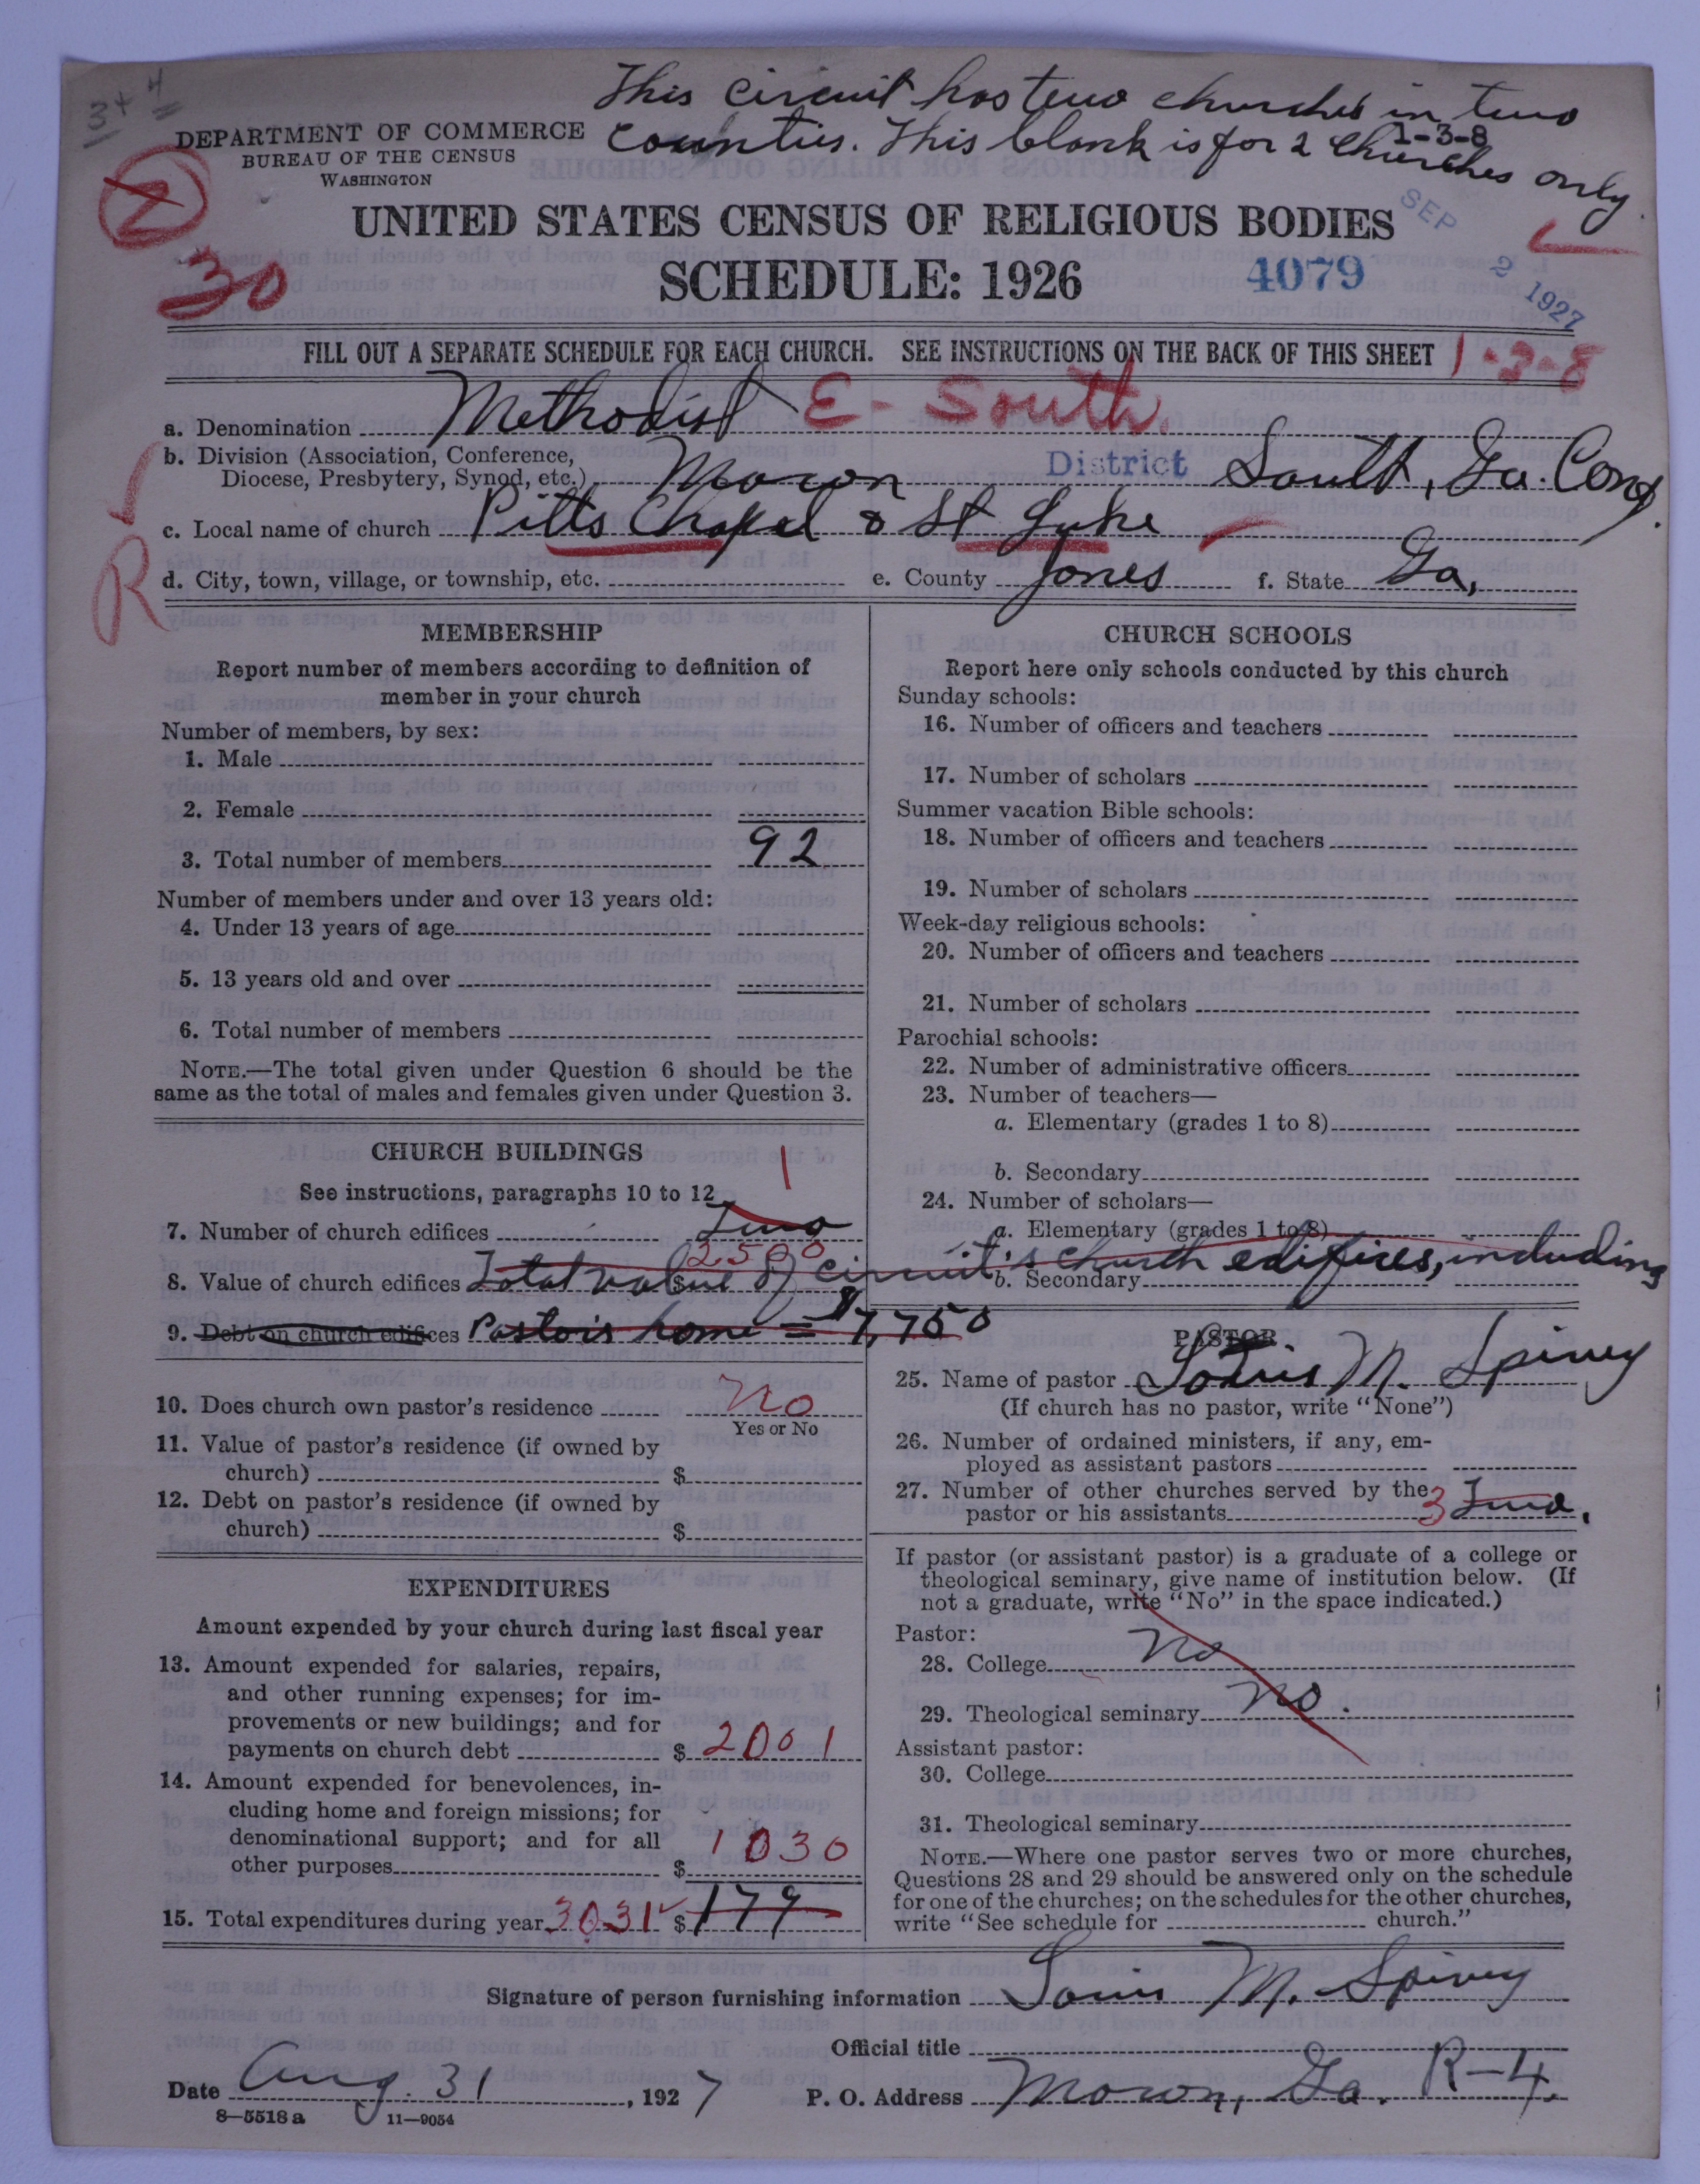 3 + 4
This circuit has two churches in two
counties. This blank is for 2 churches only.
1-3-8
DEPARTMENT OF COMMERCE
BUREAU OF THE CENSUS
WASHINGTON
2
30
UNITED STATES CENSUS OF RELIGIOUS BODIES
SCHEDULE: 1926
4079
SEP 2 1927
FILL OUT A SEPARATE SCHEDULE FOR EACH CHURCH. SEE INSTRUCTIONS ON THE BACK OF THIS SHEET 1-3-8
a. Denomination Methodist E- South.
b. Division (Association, Conference,
Diocese, Presbytery, Synod, etc.) Macon District South, Ga. Conf.
c. Local name of church Pitts Chapel & St Luke
R
d. City, town, village, or township, etc. e. County Jones f. State Ga,
MEMBERSHIP
Report number of members according to definition of
member in your church
Number of members, by sex:
1. Male
2. Female
3. Total number of members 92
Number of members under and over 13 years old:
4. Under 13 years of age
5. 13 years old and over
6. Total number of members
NOTE.—The total given under Question 6 should be the
same as the total of males and females given under Question 3.
CHURCH BUILDINGS
See instructions, paragraphs 10 to 12
1
7. Number of church edifices Two
2500
8. Value of church edifices $ Total value of circuit's church edifices, including
9. Debt on church edifices Pastor's home = $7,750
10. Does church own pastor's residence No
Yes or No
11. Value of pastor's residence (if owned by
church) $
12. Debt on pastor's residence (if owned by
church) $
EXPENDITURES
Amount expended by your church during last fiscal year
13. Amount expended for salaries, repairs,
and other running expenses; for im-
provements or new buildings; and for
payments on church debt $ 2001
14. Amount expended for benevolences, in-
cluding home and foreign missions; for
denominational support; and for all
other purposes $ 1030
15. Total expenditures during year 3031 $ 179
CHURCH SCHOOLS
Report here only schools conducted by this church
Sunday schools:
16. Number of officers and teachers
17. Number of scholars
Summer vacation Bible schools:
18. Number of officers and teachers
19. Number of scholars
Week-day religious schools:
20. Number of officers and teachers
21. Number of scholars
Parochial schools:
22. Number of administrative officers
23. Number of teachers—
a. Elementary (grades 1 to 8)
b. Secondary
24. Number of scholars—
a. Elementary (grades 1 to 8)
b. Secondary
PASTOR
25. Name of pastor Louis M. Spivey
(If church has no pastor, write "None")
26. Number of ordained ministers, if any, em-
ployed as assistant pastors
27. Number of other churches served by the
pastor or his assistants 3 Two.
If pastor (or assistant pastor) is a graduate of a college or
theological seminary, give name of institution below. (If
not a graduate, write "No" in the space indicated.)
Pastor:
28. College No
29. Theological seminary No.
Assistant pastor:
30. College
31. Theological seminary
NOTE.—Where one pastor serves two or more churches,
Questions 28 and 29 should be answered only on the schedule
for one of the churches; on the schedules for the other churches,
write "See schedule for church."
Signature of person furnishing information Louis M. Spivey
Official title
Date Aug. 31, 1927 P. O. Address Macon, Ga. R-4.
8—5518 a 11—9054